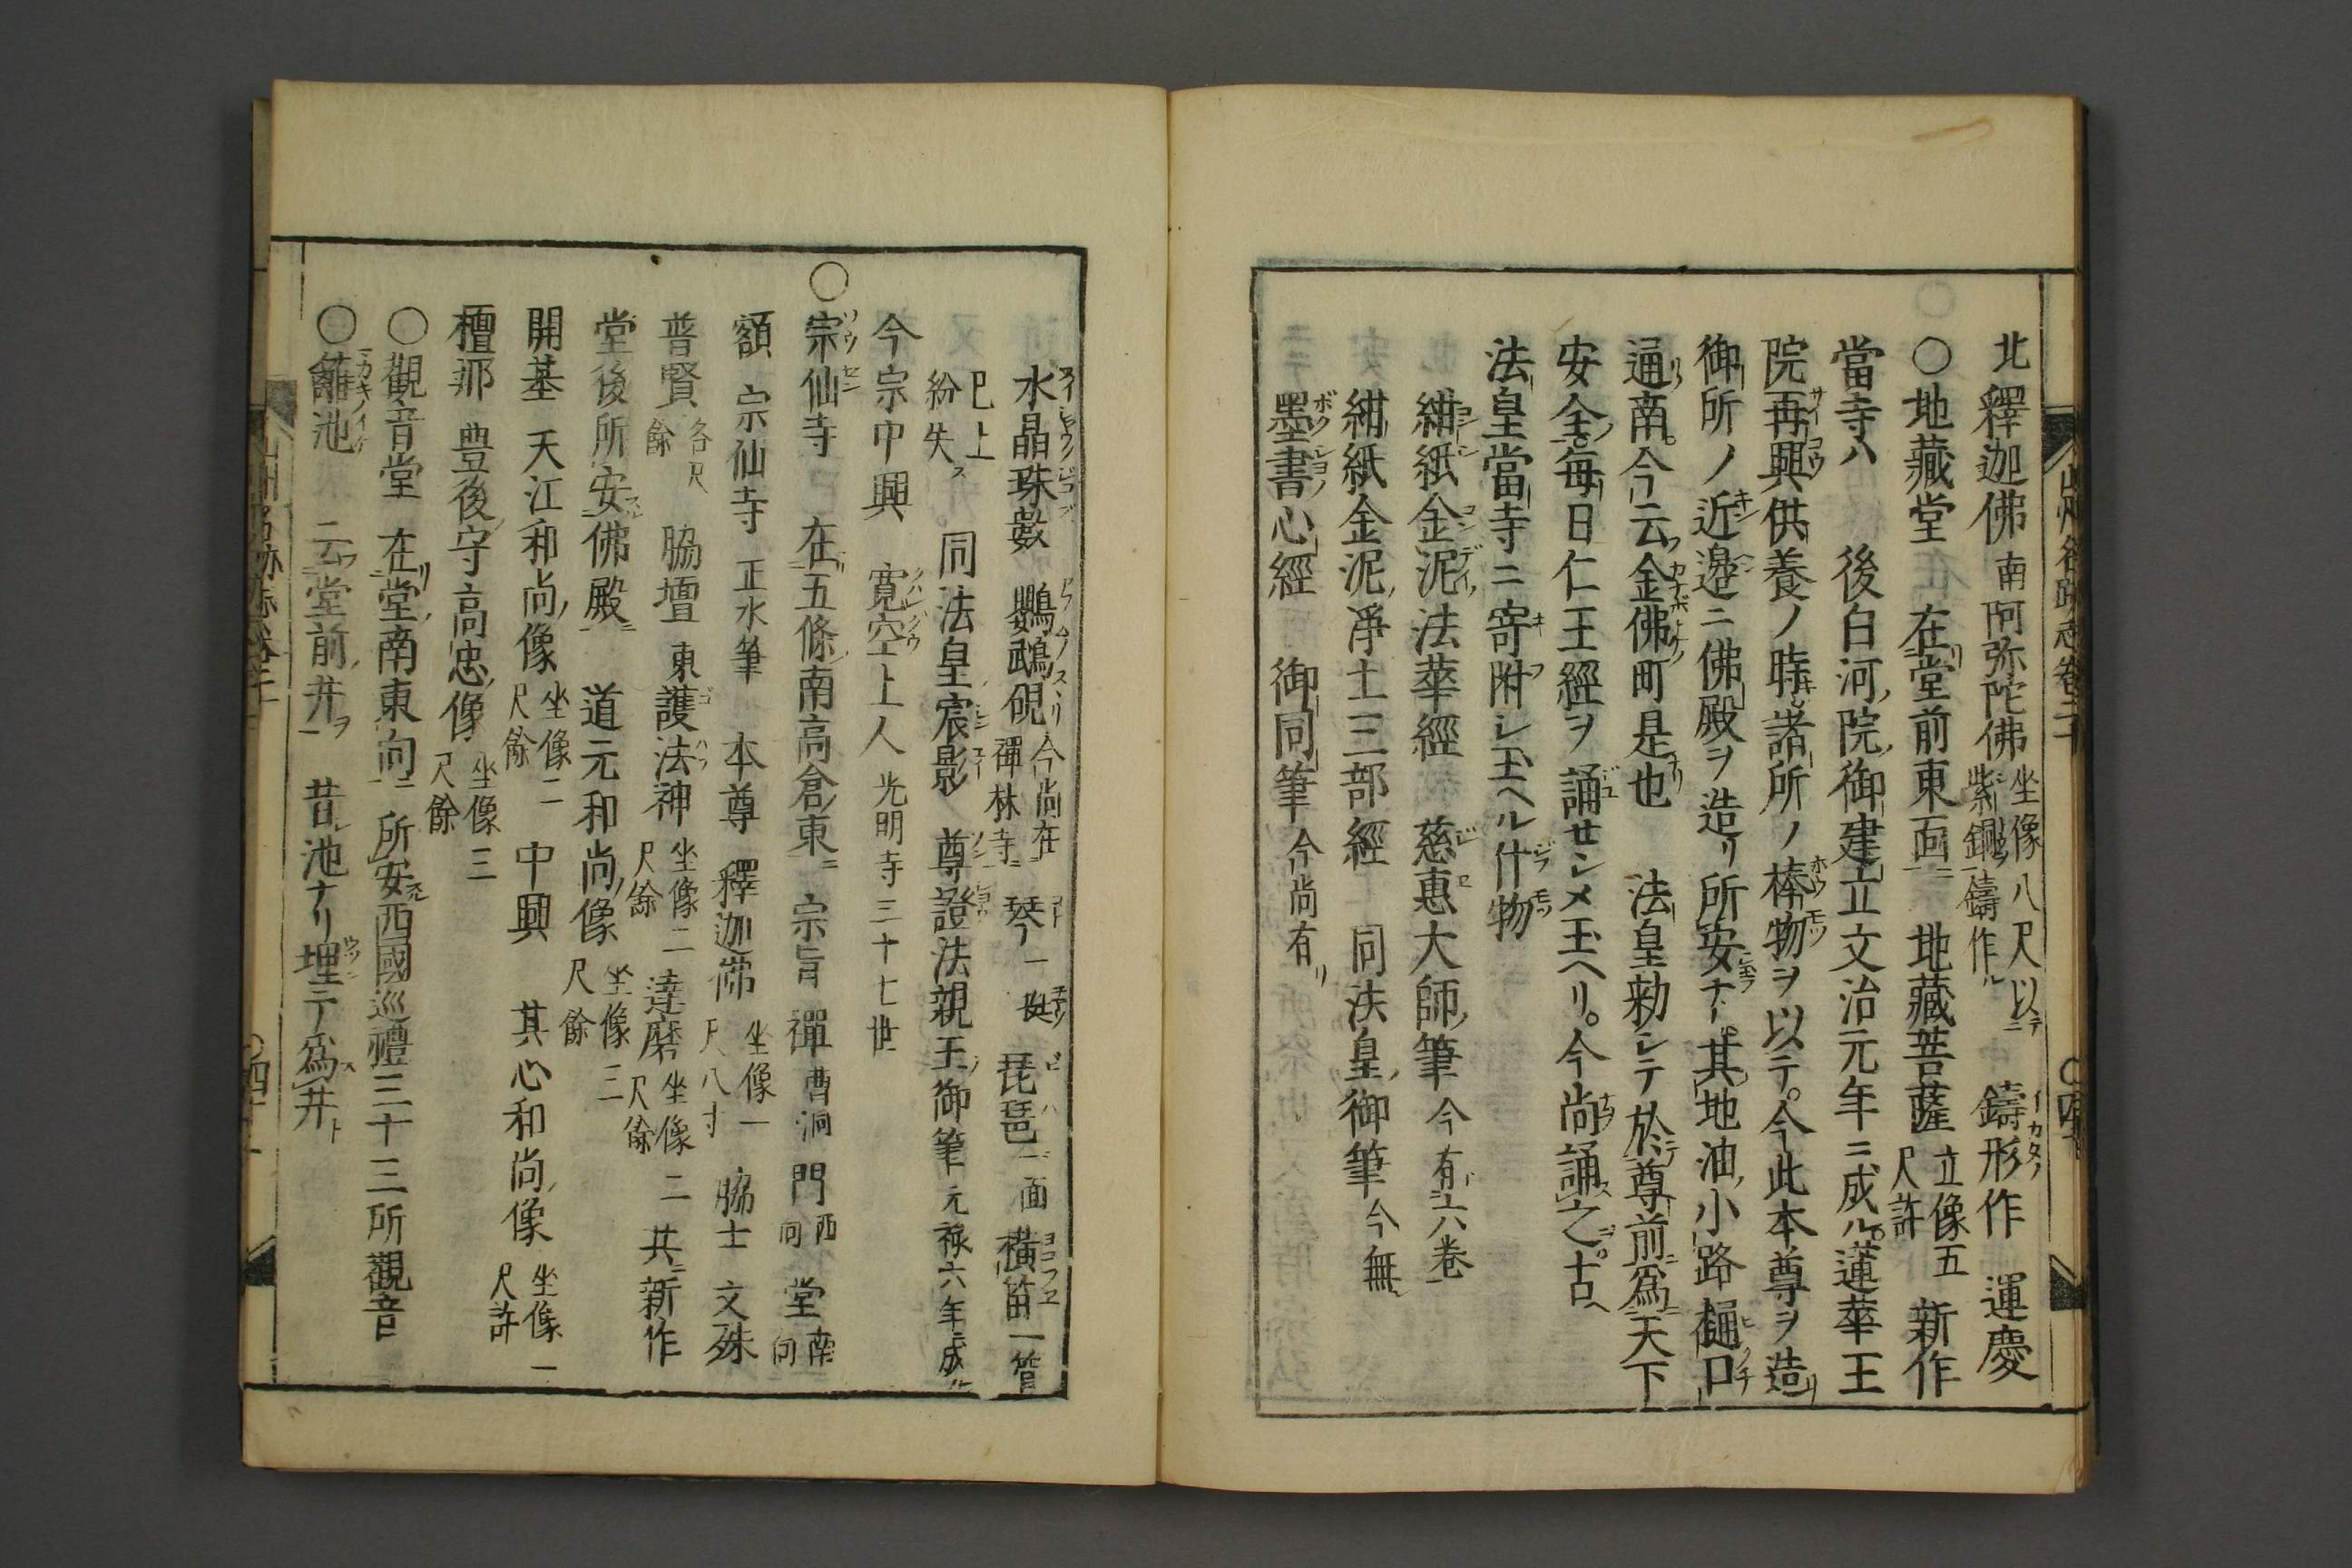 北 釋迦佛 南 阿弥陀佛 坐像八尺以テ紫銅ヲ鑄作ル 鑄形作 運慶
○地藏堂 在堂前東面 地藏菩薩 立像五尺許 新作
當寺ハ 後白河院御建立文治元年ニ成ル蓮華王
院再興供養ノ時諸所ノ棒物ヲ以テ今此本尊ヲ造リ
御所ノ近邊ニ佛殿ヲ造リ所安ナリ其地油小路樋口
通南今云金佛町是也 法皇勅シテ於尊前爲天下
安全每日仁王經ヲ誦セシメ玉ヘリ今尚誦之古ヘ
法皇當寺ニ寄附シ玉ヘル什物
紺紙金泥法華經 慈惠大師筆 今有六卷
紺紙金泥淨土三部經 同法皇御筆 今無
墨書心經 御同筆 今尚有リ
山州名跡志卷二十
水晶珠數 鸚鵡硯 今尚在禪林寺 琴一挺 琵琶一面 橫笛一管
巳上紛失ス 同法皇宸影 尊證法親王御筆 元祿六年成
今宗中興 寛空上人 光明寺三十七世
○宗仙寺 在五條南高倉東 宗旨 禪 曹洞 門 西向 堂 南向
額 宗仙寺 正水筆 本尊 釋迦佛 坐像一尺八寸 脇士 文殊
普賢 各尺餘 脇壇 東 護法神 坐像二尺餘 達磨 坐像二尺餘 共新作
堂後所安佛殿 道元和尚像 坐像三尺餘
開基 天江和尚像 坐像二尺餘 中興 其心和尚像 坐像一尺許
檀那 豊後守高忠像 坐像三尺餘
○觀音堂 在堂南東向 所安西國巡禮三十三所觀音
○籬池 云堂前井 昔池ナリ埋テ爲井